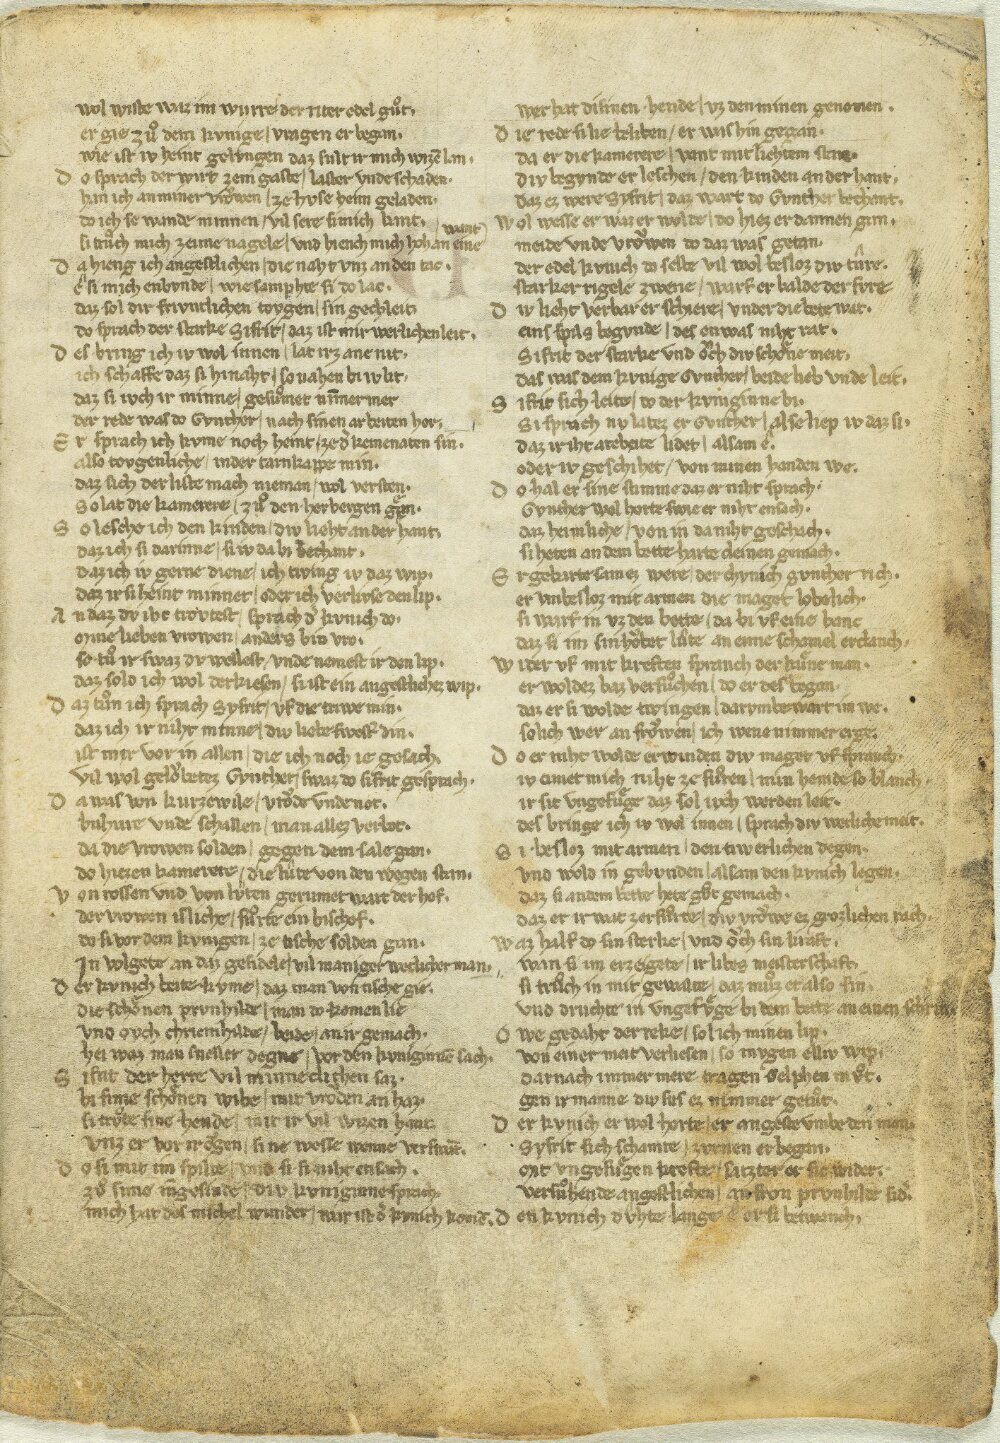 wol wiste waz im wurre der riter edel gůt.
er gie zů dem kvnige / vragen er began.
wie ist iv heint gelvngen daz sult ir mich wizē lan.
D o sprach der wirt zem gaste / laster vnde schaden.
han ich an miner vrowen / ze hvse heim geladen.
do ich se wande minnen / vil sere si mich bant.
si trůch mich zeime nagele / vnd hiench mich hoh an eine want
D a hieng ich angestlichen / die naht vnz an den tac.
ê si mich enbvnde / wie samphte si do lac.
daz sol dir frivntlichen tovgen / sin gechleit.
do sprach der starke Sifrit / daz ist mir werlichen leit.
D es bring ich iv wol innen / lat irz ane nit.
ich schaffe daz si hinaht / so nahen bi iv lit.
daz si ivch ir minne / gesůmet nimmer mer
der rede was do Gvnther / nach sinen arbeiten her.
E r sprach ich kvme noch heint / ze d' kemenaten sin.
also tovgenliche / in der tarnkappe min.
daz sich der liste mach nieman / wol versten.
so lat die kamerere / zů den herbergen gen.
S o lesche ich den kinden / div lieht an der hant.
daz ich si darinne / si iv da bi bechant.
daz ich iv gerne diene / ich twing iv daz wip.
daz ir si heint minnet / oder ich verlivse den lip.
A n daz dv iht trovtest / sprach d' kvnich do.
mine lieben vrowen / anders bin vro.
so tů ir swaz dv wellest / vnde nemest ir den lip.
daz sold ich wol derkiesen / si ist ein angestlichez wip.
D az tůn ich sprach Syfrit / vf die triwe min.
daz ich ir niht minne / div liebe swest' din.
ist mir vor in allen / die ich noch ie gesach.
vil wol gelovbetez Gvnther / swaz do sifrit gesprach.
D a was von kurzewile / vrode vnde not.
buhurt vnde schallen / man allez verbot.
da die vrowen solden / gegen dem sale gan.
do hiezen kamerere / die lůte von den wegen stan.
V on rossen vnd von lvten gerumet wart der hof.
der vrowen isliche / fůrte ein bischof.
do si vor dem kvnigen / ze tische solden gan.
In volgete an daz gesidele / vil maniger wetlicher man.
D er kvnich beite kvme / daz man von tische gie.
die schönen prvnhilde / man do komen lie
vnd ovch chriemhilde / beide / an ir gemach.
hei waz man sneller degne / vor den kvniginne sach.
S ifrit der herre vil minneclichen saz.
bi sinie schönen wibe / mit vroden an haz.
si trůte sine hende / mit ir vil wizen hant.
vnz er vor ir ogen / si ne wesse wenne verswant.
D o si mit im spilte / vnd si si niht ensach.
zů sime ingesinde / div kvniginne sprach.
mich hat des michel wunder / war ist d' kvnich komē.
wer hat disinen hende / vz den minen genomen.
D ie rede si lie beliben / er was hin gegan.
da er die kamerere / vant mit lichtem stan.
div begvnde er leschen / den kinden an der hant.
daz ez were Syfrit / daz wart do Gvnther bechant.
W ol wesse er waz er wolde / do hiez er dannen gan.
meide vnde vrowen do daz was getan.
der edel kvnich do selbe vil wol besloz div tůre.
starker rigele zwene / warf er balde der fvre
D iv lieht verbarg er schiere / vnder die bete wat.
eins spils begvnde / des en was niht rat.
Sifrit der starke vnd ovch div schöne meit.
das was dem kvnige Gvnther / beide lieb vnde leit.
S ifrit sich leite / do der kvniginne bi.
Si sprach nv latez er Gvnther / als liep iv daz si.
daz ir iht arebeite lidet / alsam ê.
oder iv geschihet / von minen handen we.
D o hal er sine stimme daz er niht sprach.
Gvnther wol horte swie er niht ensach.
daz heimliche / von in da niht geschach.
si heten an dem bette harte cleinen gemach.
E r gebarte sam ez were / der chvnich gvnther rich.
er vmbesloz mit armen die maget lobelich.
si warf in vz den bette / da bi vf eine banc
daz si im sin höbet lute an eine schamel erclanch.
W ider vf mit kreften sprauch der kůne man.
er woldez baz versůchen / do er des began.
daz er si wolde twingen / darvmbe wart im we.
solich wer an frowen / ich wene nimmer erge.
D o er niht wolde erwinden div maget vf spranch.
ir cimet mich niht ze fůren / min hemde so blanch.
ir sit vngefůge daz sol ivch werden leit.
des bringe ich iv wol innen / sprach div wetliche meit.
S i besloz mit armen / den tiwerlichen degen.
vnd wold in gebvnden / alsam den kvnich legen.
daz si an dem bette hete gůt gemach.
daz er ir wat zerfůrte / div vröwe ez grozlichen rach.
W az half do sin sterke / vnd öch sin kraft.
wan si im erzeigete / ir libes meisterschaft.
si trůch in mit gewalte / daz můz et also sin.
vnd druchte in vngefůge bi dem bette an einen schrin.
O we gedaht der reke / sol ich minen lip.
von einer meit verliesen / so mvgen elliv wip.
darnach immer mere tragen gelphen mvt.
gen ir manne div sus ez nimmer getůt.
D er kvnich er wol horte / er angeste vmbe den man.
Syfrit sich schamte / zvrnen er began.
mit vngefůgen krefte / satzter er sie wider.
versůhende angestlichen / an fron prvnhilde sid'.
D en kvnich dvhte lange ê er si betwanch.